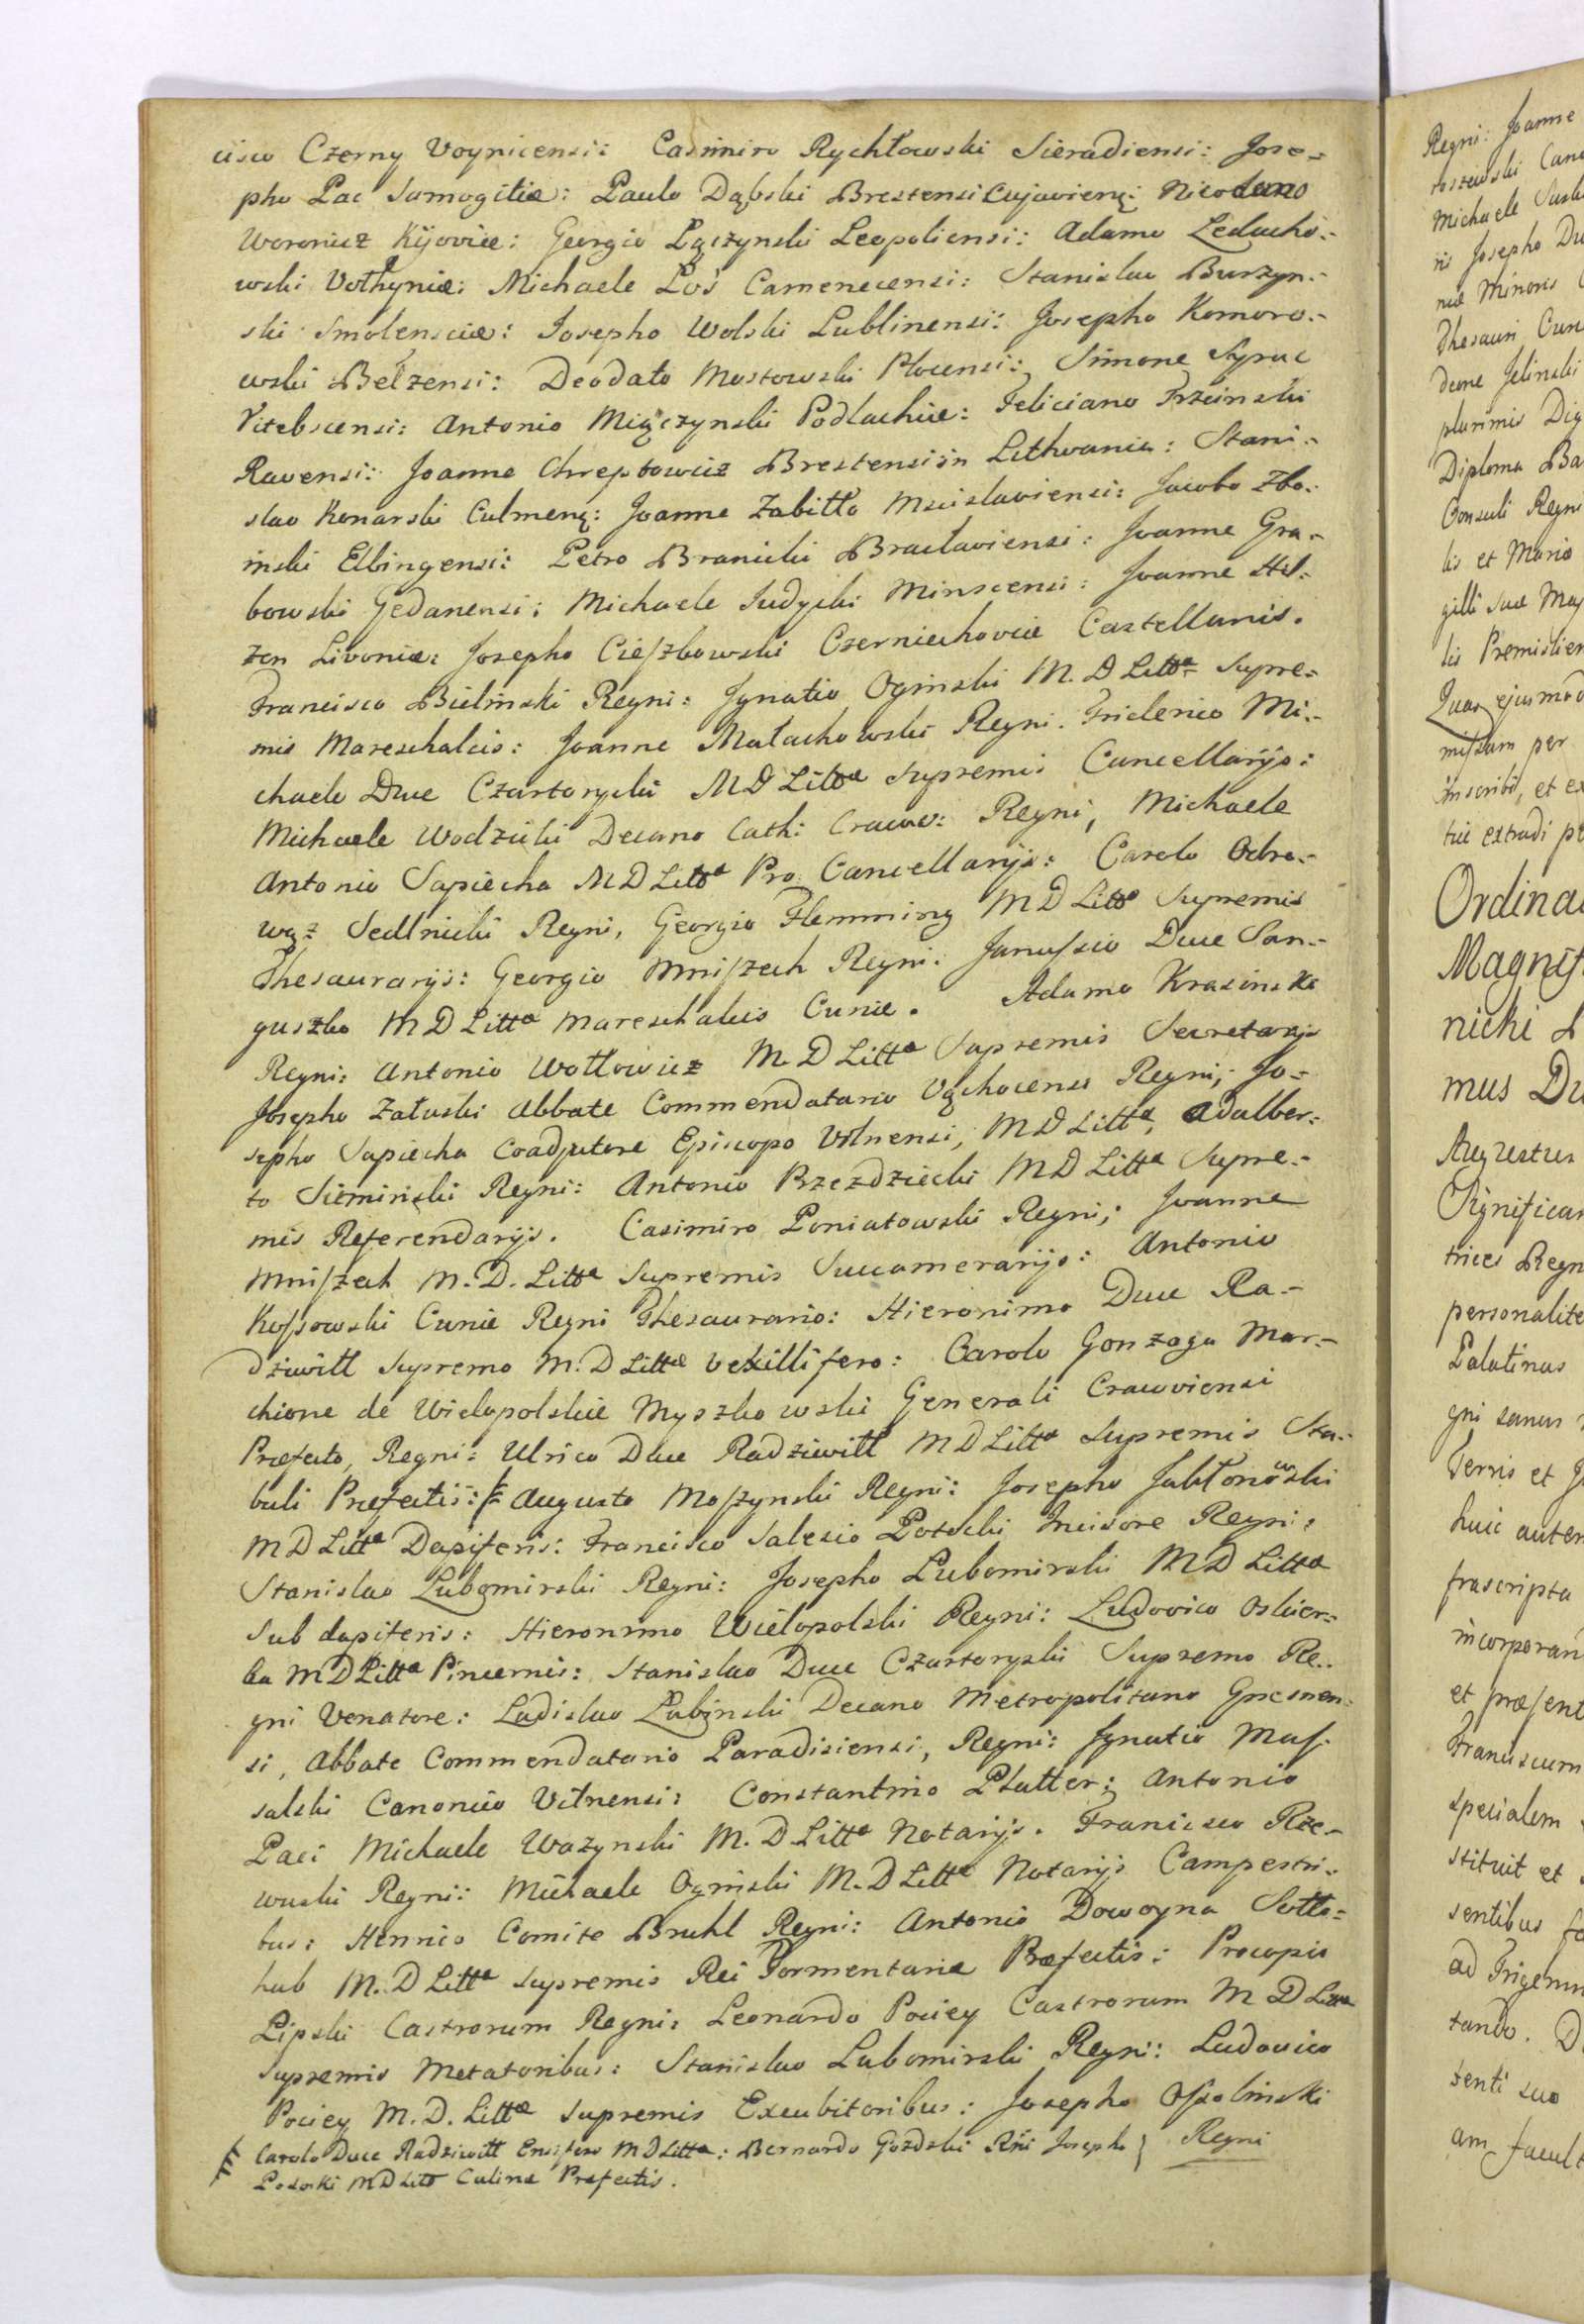 cisco Czerny Voynicensi: Casimiro Rychłowski Sieradiensi: Jose=
pho Pac Samogitiæ: Paulo Dąbski Brestensi Cujavienq: Nicodemo
Woronicz Kijoviæ: Georgio Łączynski Leopoliensi: Adamo Leducho=
wski Vołhyniæ: Michaele Łoś Camenecensi: Stanislao Burzyn=
ski Smolensciæ: Josepho Wolski Lublinensi: Josepho Komoro=
wski Bełzensi: Deodato Mostowski Plocensi: Simone Syruc
Vitebscensi: Antonio Miączynski Podlachiæ: Feliciano Trzcinski
Ravensi: Joanne Chreptowicz Brestensi in Lithvania: Stani=
slao Konarski Culmenq: Joanne Zabiłło Mscislaviensi: Jacobo Zbo=
inski Elbingensi: Petro Branicki Bracłaviensi: Joanne Gra=
bowski Gedanensi: Michaele Judycki Minscensi: Joanne Hil=
zen Livoniæ: Josepho Cieszkowski Czerniechoviæ Castellanis.
Francisco Bielinski Regni: Ignatio Oginski M. D Littæ Supre=
mis Mareschalcis: Joanne Małachowski Regni: Friderico Mi=
chaele Duce Czartoryski M D Littæ Supremis Cancellarijs:
Michaele Wodzicki Decano Cath: Cracov: Regni, Michaele
Antonio Sapiecha M D Littæ Pro Cancellarijs: Carolo Odro=
wąż Sedlnicki Regni, Georgio Flemming M D Littæ Supremis
Thesaurarijs: Georgio Mniszech Regni: Janussio Duce San=
guszko M D Littæ Mareschalcis Curiæ. Adamo Krasinski
Regni: Antonio Wołłowicz M D Littæ Supremis Secretarijs
Josepho Załuski Abbate Commendatario Vąchocensi Regni; Jo=
sepho Sapiecha Coadjutore Episcopo Vilnensi, M D Littæ, Adalber=
to Sieminski Regni: Antonio Przezdziecki M D Littæ Supre=
mis Referendarijs. Casimiro Poniatowski Regni; Joanne
Mniszech M. D. Littæ Supremis Succamerarijs: Antonio
Kossowski Curiæ Regni Thesaurario: Hieronimo Duce Ra=
dziwill Supremo M. D Littæ Vexillifero: Carolo Gonzaga Mar=
chione de Wielopolskie Myszkowski Generali Cracoviensi
Præfecto, Regni: Ulrico Duce Radziwill M D Littæ Supremis Sta=
buli Præfectis: Augusto Moszynski Regni: Josepho Jabłonowski
M D Littæ Dapiferis: Francisco Salesio Potocki Incisore Regni:
Stanislao Lubomirski Regni: Josepho Lubomirski M D Littæ
Sub dapiferis: Hieronimo Wielopolski Regni: Ludovico Oskier=
ka M D Littæ Pincernis: Stanislao Duce Czartoryski Supremo Re=
gni Venatore: Ladislao Łubinski Decano Metropolitano Gnesnen=
si, Abbate Commendatario Paradisiensi, Regni: Ignatio Mas=
salski Canonico Vilnensi: Constantino Platter: Antonio
Paci Michaele Wazynski M. D Littæ Notarijs. Francisco Rze=
wuski Regni: Michaele Oginski M. D Littæ Notarijs Campestri=
bus: Henrico Comite Bruhl Regni: Antonio Dowoyna Sołło=
hub M. D Littæ Supremis Rei Tormentariæ Præfectis: Procopio
Lipski Castrorum Regni: Leonardo Pociey Castrorum M D Littæ
Supremis Metatoribus: Stanislao Lubomirski Regni: Ludovico
Pociey M. D. Littæ Supremis Excubitoribus: Josepho Ossolinski
Carolo Duce Radziwill Ensifero M D Littæ: Bernardo Gozdski Rñi Josepho } Regni
Potocki M D Litt Culinæ Præfectis.
Regni: Joanne
Michaele
ris Josepho
Minoris
Thesauri
plurimis
Diploma
Consuli Regni
lis et
Quas
per
inscribi, et
extradi
Ordina
Magnif
nicki
mus
Significa
trices Regn
personalite
Palatinus
gni
Terris et
huic autem
frascripta
incorporan
et præsent
Franciscum
specialem
stituit et
sentibus
ad
tando.
senti suo
am facult